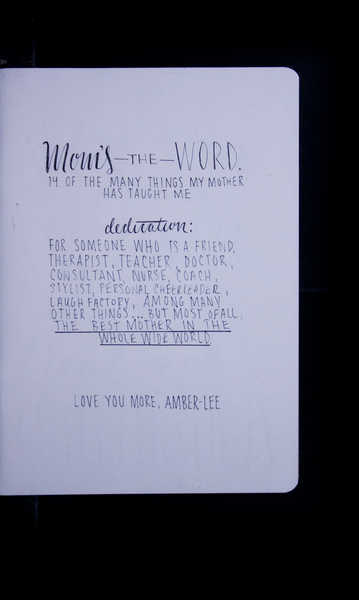 Mom's—THE—WORD.
14 OF THE MANY THINGS MY MOTHER
HAS TAUGHT ME
dedication:
FOR SOMEONE WHO IS A FRIEND,
THERAPIST, TEACHER, DOCTOR,
CONSULTANT, NURSE, COACH,
STYLIST, PERSONAL CHEERLEADER,
LAUGH FACTORY, AMONG MANY
OTHER THINGS... BUT MOST OF ALL,
THE BEST MOTHER IN THE
WHOLE WIDE WORLD
LOVE YOU MORE, AMBER-LEE